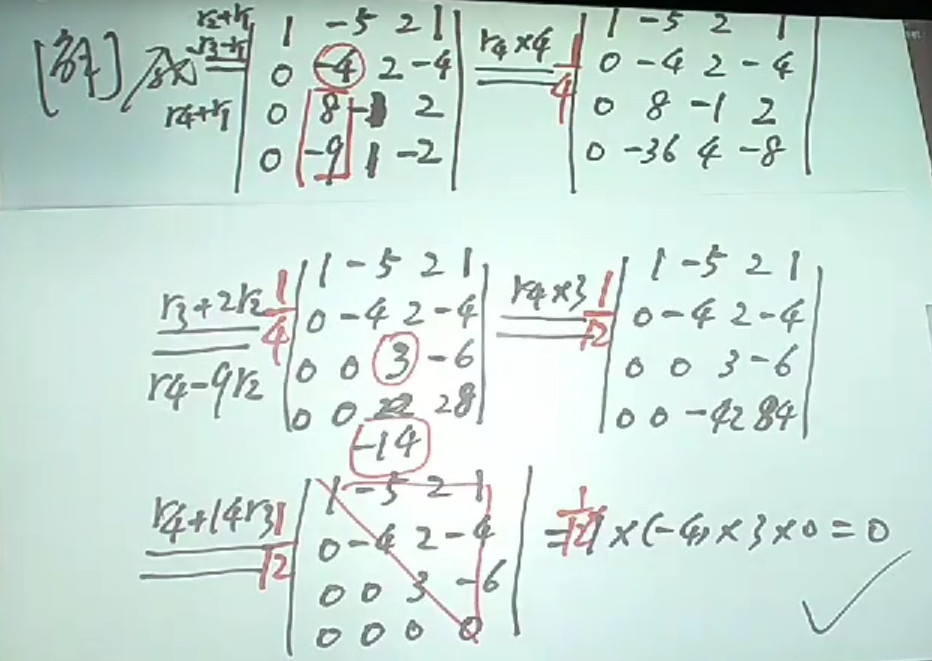 [解] 原式
r2+r1
r3-r1
r4+r1
1 -5 2 1
0 -4 2 -4
0 8 -1 2
0 -9 1 -2
r4×4
1/4
1 -5 2 1
0 -4 2 -4
0 8 -1 2
0 -36 4 -8
r3+2r2
r4-9r2
1/4
1 -5 2 1
0 -4 2 -4
0 0 3 -6
0 0 22 28
-14
r4×3
1/12
1 -5 2 1
0 -4 2 -4
0 0 3 -6
0 0 -42 84
r4+14r3
1/12
1 -5 2 1
0 -4 2 -4
0 0 3 -6
0 0 0 0
=1/12×(-4)×3×0=0